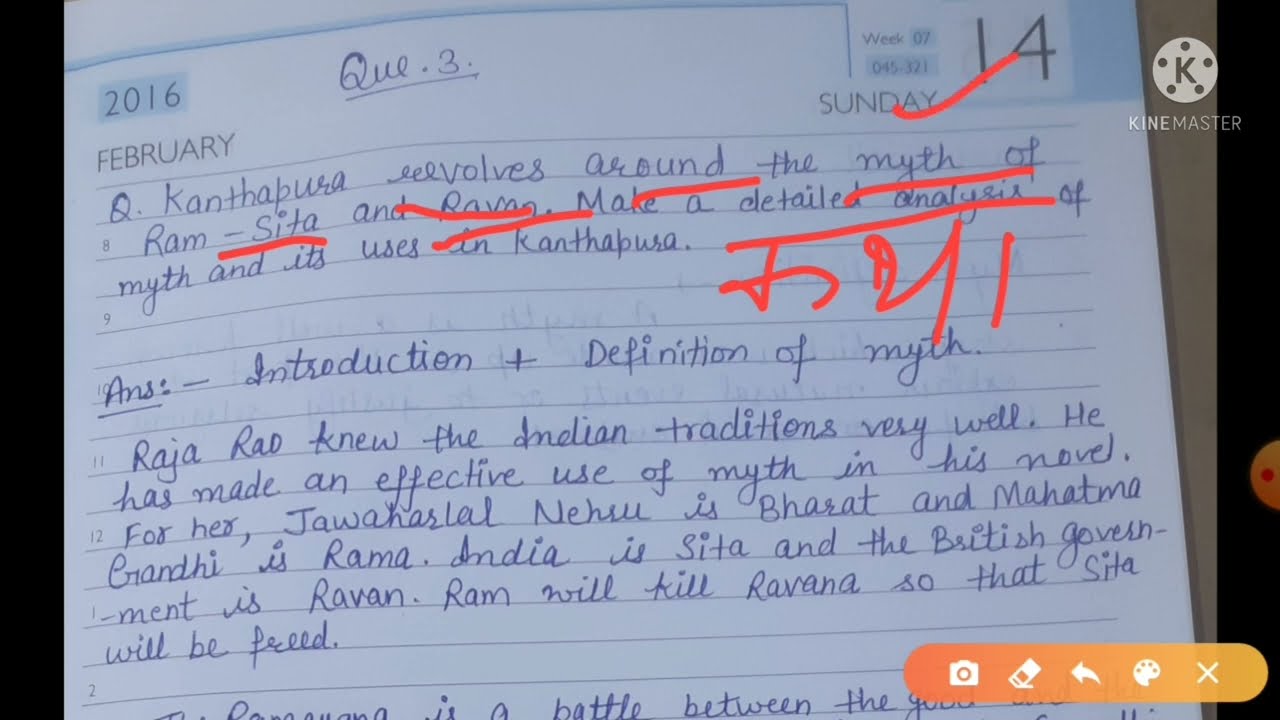 Que. 3.
Week 07
045-321
14
2016
SUNDAY
FEBRUARY
KINEMASTER
Q. Kanthapura revolves around the myth of
8 Ram - Sita and Ravan. Make a detailed analysis of
myth and its uses in Kanthapura.
कथा
9
10 Ans:- Introduction + Definition of myth.
11 Raja Rao knew the Indian traditions very well. He
has made an effective use of myth in his novel.
12 For her, Jawaharlal Nehru is Bharat and Mahatma
Gandhi is Rama. India is Sita and the British govern-
1 -ment is Ravan. Ram will kill Ravana so that Sita
will be freed.
2
Ramayana is a battle between the good and the